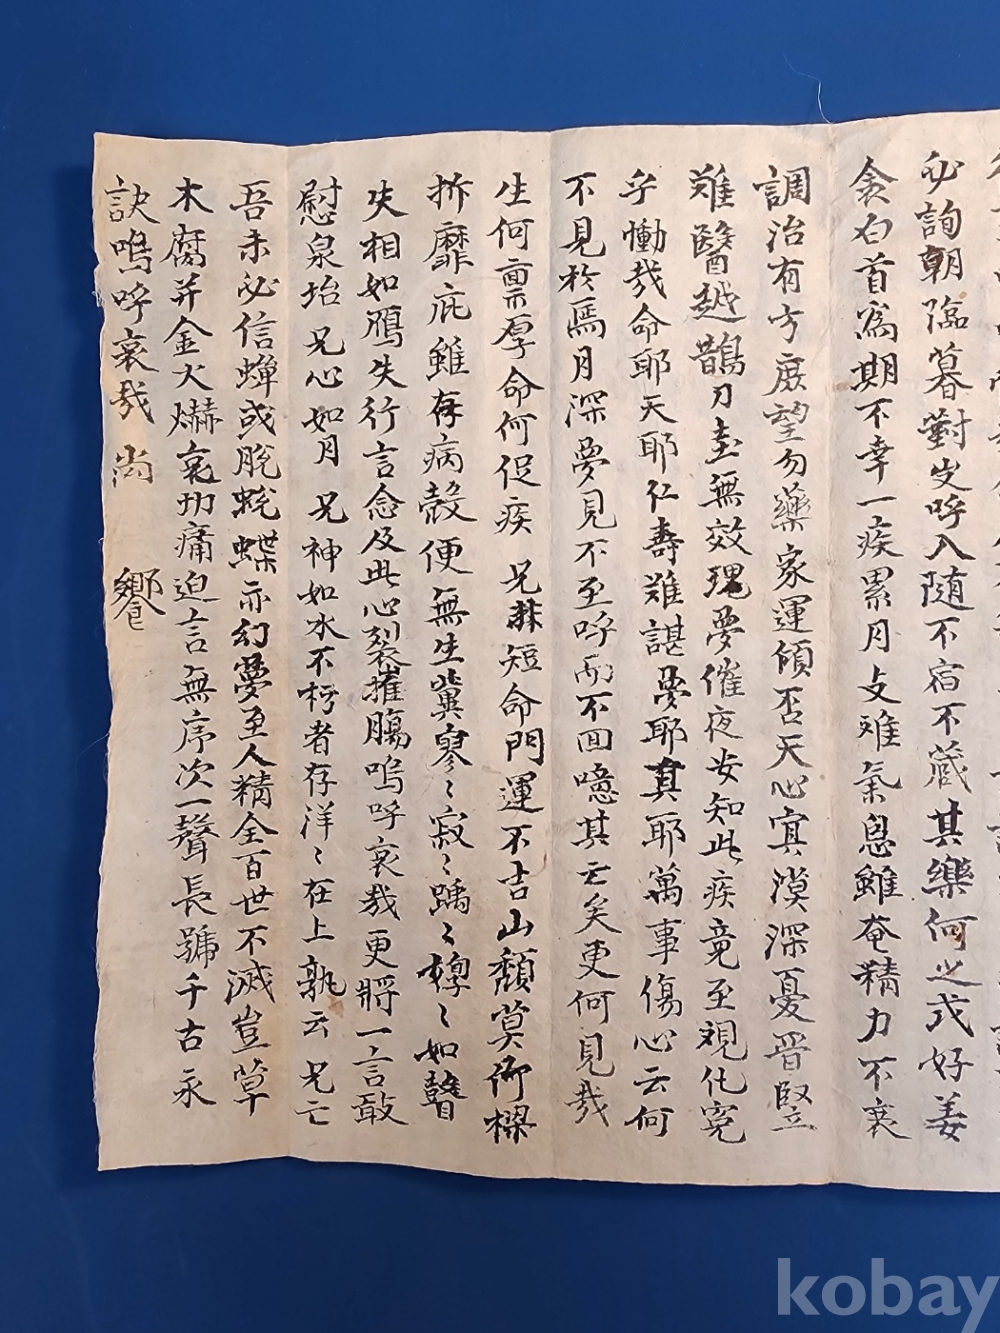 必詢朝臨暮對叟呼入随不宿不藏其樂何之式好姜
衾白首爲期不幸一疾累月支難氣息雖奄精力不衰
調治有方庶望勿藥家運傾否天心寞漠深憂晋堅
難醫越鵲刀圭無效瑰夢催夜安知此疾竟至觀化寃
乎慟哉命耶天耶仁壽難諶夢耶真耶萬事傷心云何
不見於焉月深夢見不至呼而不回噫其云矣更何見哉
生何禀厚命何促疾 兄 短命門運不吉山頹莫仰樑
折靡庇雖存病殼便無生冀寥〻寂〻踽〻㷀〻如瞽
失相如鴈失行言念及此心裂摧膓嗚呼哀哉更將一言敢
慰泉抬 兄心如月 兄神如水不朽者存洋〻在上孰云兄亡
吾未必信蟬或脫蛻蝶亦幻夢至人精全百世不滅豈草
木腐并金火爀哀功痛迫言無序次一聲長號千古永
訣嗚呼哀哉 尚 饗
kobay